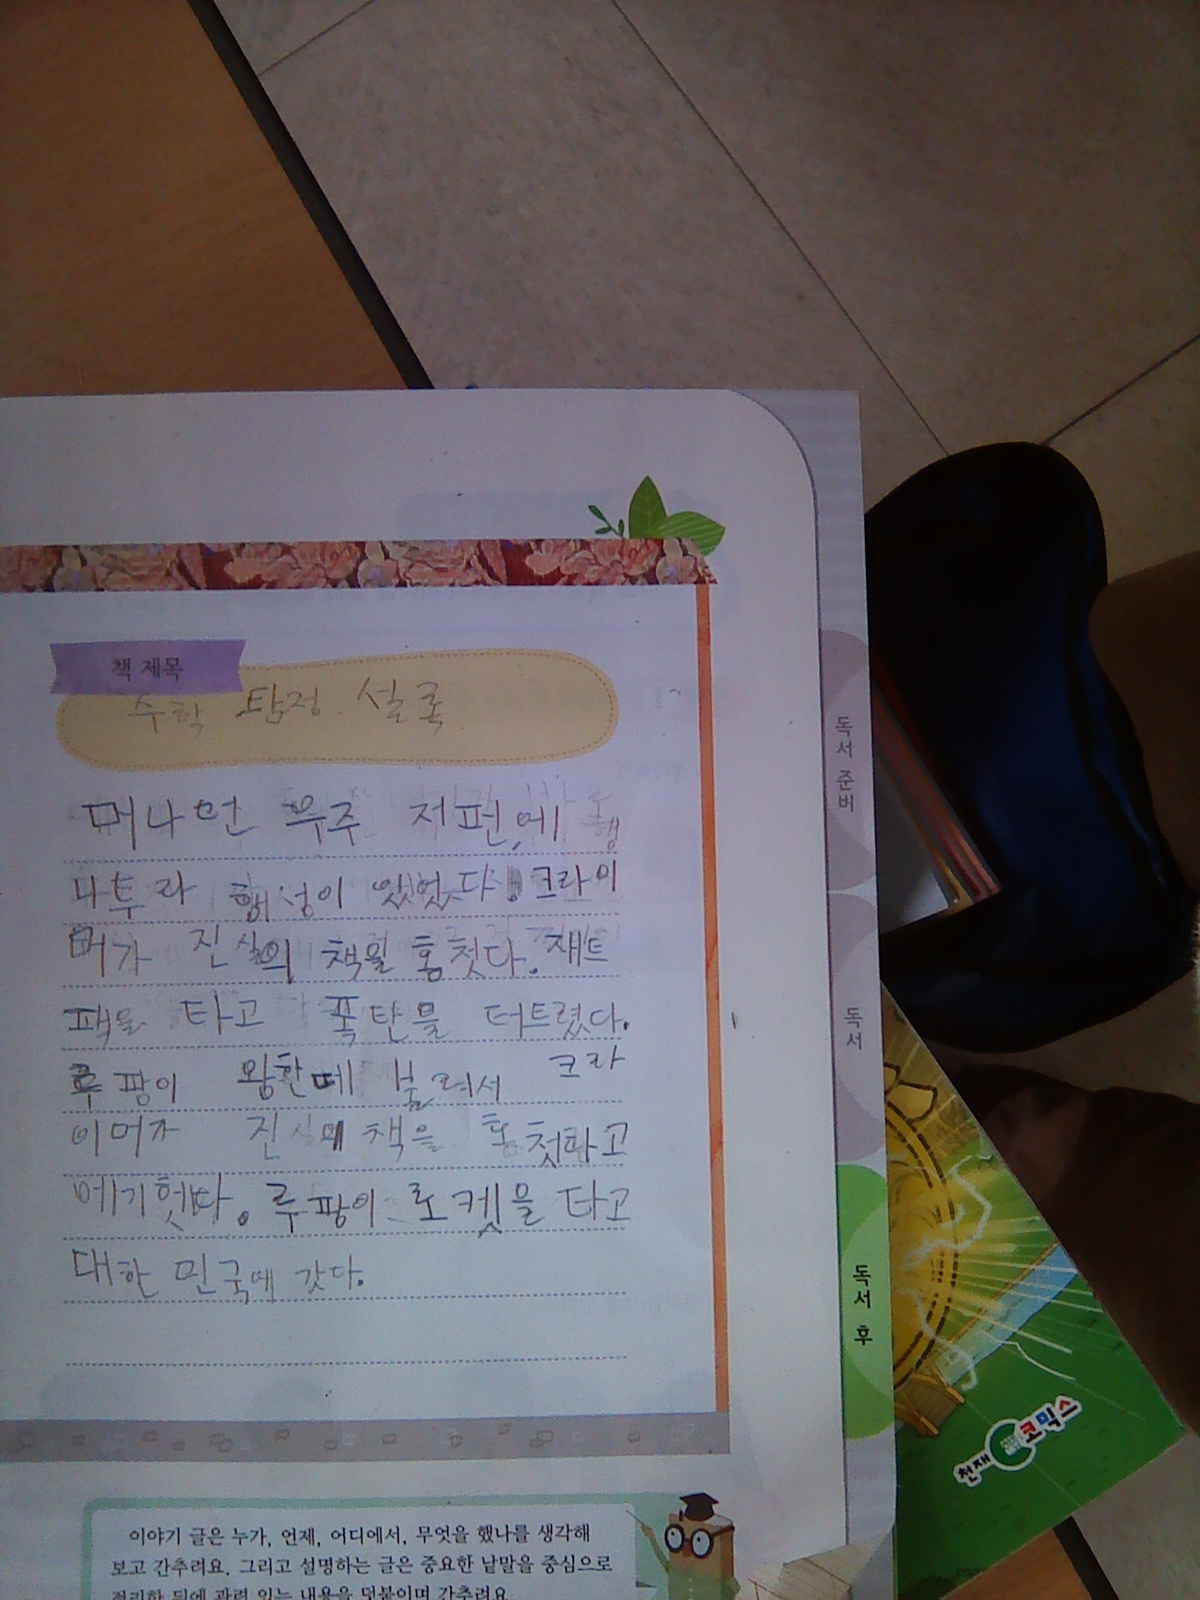 책 제목
수학 탐정 설록
머나먼 우주 저편,에
나투라 행성이 있었다. 크라이
머가 진실의 책을 훔첫다. 재트
팩을 타고 폭탄믈 터트렸다.
루팡이 왕한떼 불려서 크라
이머가 진실의 책을 훔첫다고
예기헷다. 루팡이 로켓을 타고
대한 민국에 갓다.
이야기 글은 누가, 언제, 어디에서, 무엇을 했나를 생각해
보고 간추려요. 그리고 설명하는 글은 중요한 낱말을 중심으로
정리한 뒤에 관련 있는 내용을 덧붙이며 간추려요
독서 준비
독서
독서 후
천재 코믹스